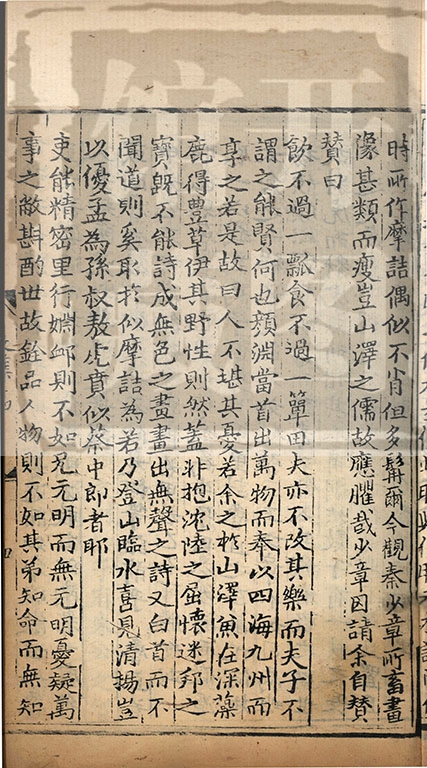 時所作摩詰偶似不肖但多髯爾今觀秦少章所畜畫
像甚類而瘦豈山澤之儒故應臞哉少章因請余自贊
贊曰
飲不過一瓢食不過一簞田夫亦不改其樂而夫子不
謂之能賢何也顏淵當首出萬物而奉以四海九州而
享之若是故曰人不堪其憂若余之於山澤魚在深藻
鹿得豐草伊其野性則然蓋非抱沈陸之屈懷迷邦之
寳旣不能詩成無色之畫畫出無聲之詩又白首而不
聞道則奚取於似摩詰為若乃登山臨水喜見清揚豈
以優孟為孫叔敖虎賁似蔡中郎者耶
吏能精密里行婣䘏則不如兄元明而無元明憂疑萬
事之敝斟酌世故銓品人物則不如其弟知命而無知